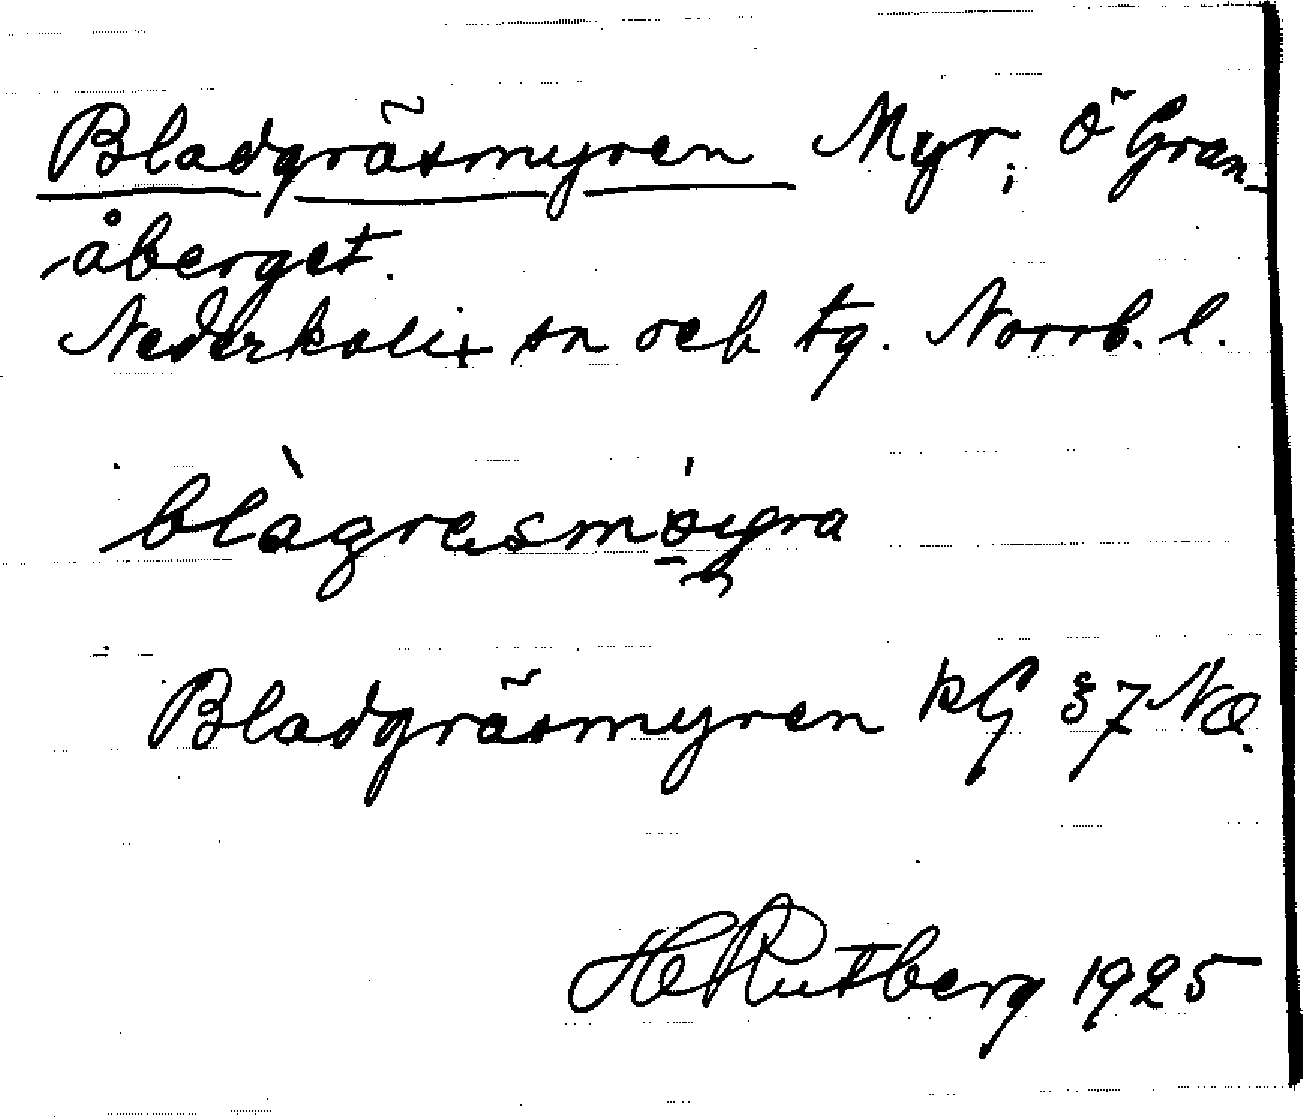 Bladgräsmyren Myr; Ö Gran-
åberget.
Nederkalix sn och tg. Norrb. l.
blàgresmøyra
Bladgräsmyren kG § 7 NO.
H Rutberg 1925